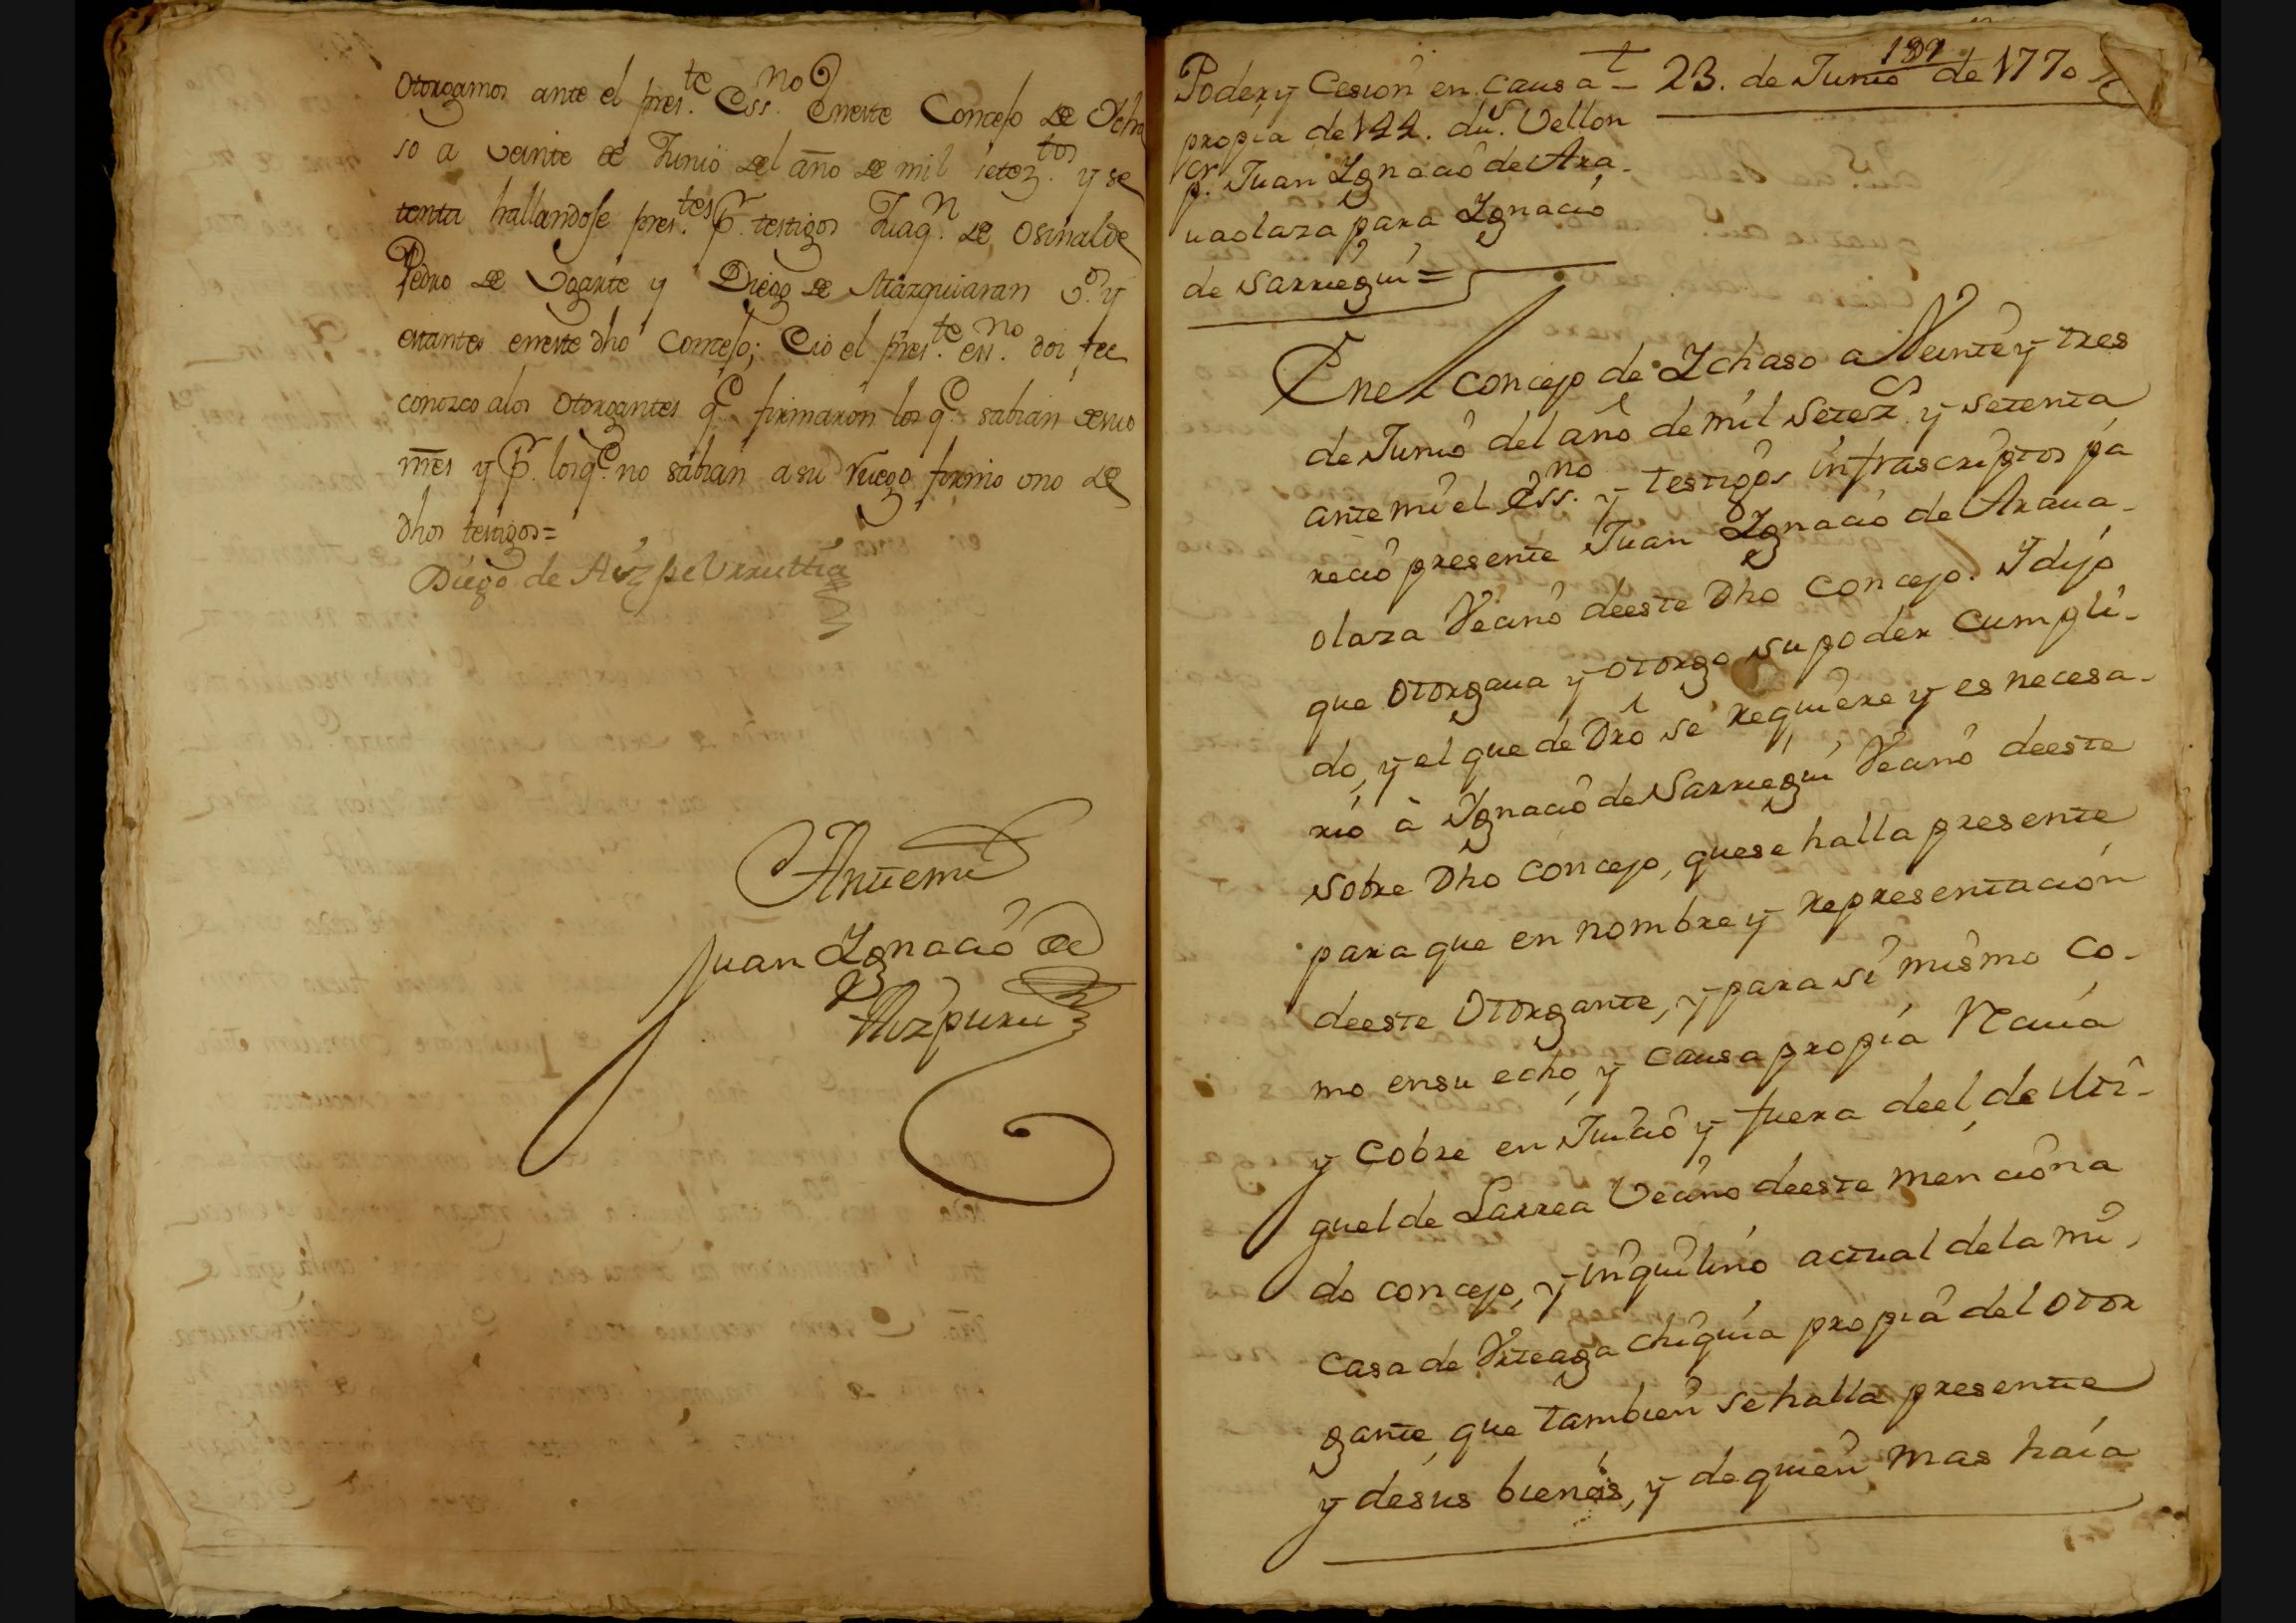 Otorgamos ante el pres.te Ess.no eneste Concejo de Ycha
so a veinte de Junio del año de mil setez.tos y se
tenta hallandose pres.tes p.r testigos Juaq.n de Osinalde
Pedro de Ugarte y Diego de Mazquiaran v.os y
estantes eneste dho Concejo; E io el pres.te ess.no doi fee
conozco alos Otorgantes q.e firmaron los q.e sabian desus
nres y p.r los q.e no sabian a su ruego firmo uno de
dhos testigos=
Diego de Aizpe Urruttia
Antemi
Juan Ygnacio de
Aizpuru
191
Poder y Cesion en causa
propia de 144. du.s Vellon
p.r Juan Ygnacio de Ara-
uaolaza para Ygnacio
de Sarriegui =
23. de Junio de 1770
Enel concejo de Ychaso a Veinte y tres
de Junio del año de mil Setez.s y setenta
ante mi el Ess.no y testigos infrascriptos pa
recio presente Juan Ygnacio de Araua-
olaza Vecino deeste Dho concejo. Y dijo
que Otorgaua y otorgo su poder cumpli-
do, y el que de Dro se requiere y es necesa-
rio à Ygnacio de Sarriegui Vecino deeste
sobre Dho concejo, quese halla presente
para que en nombre y representacion
deeste Otorgante, y para si mismo co-
mo ensu echo, y causa propia Reciua
y cobre en Juicio y fuera deel, de Mi-
guel de Larrea Vecino deeste menciona
do concejo, y inquilino actual dela mi,
casa de Viteaga chiquia propia del otor
gante, que tambien se halla presente
y desus bienes, y de quien mas haia